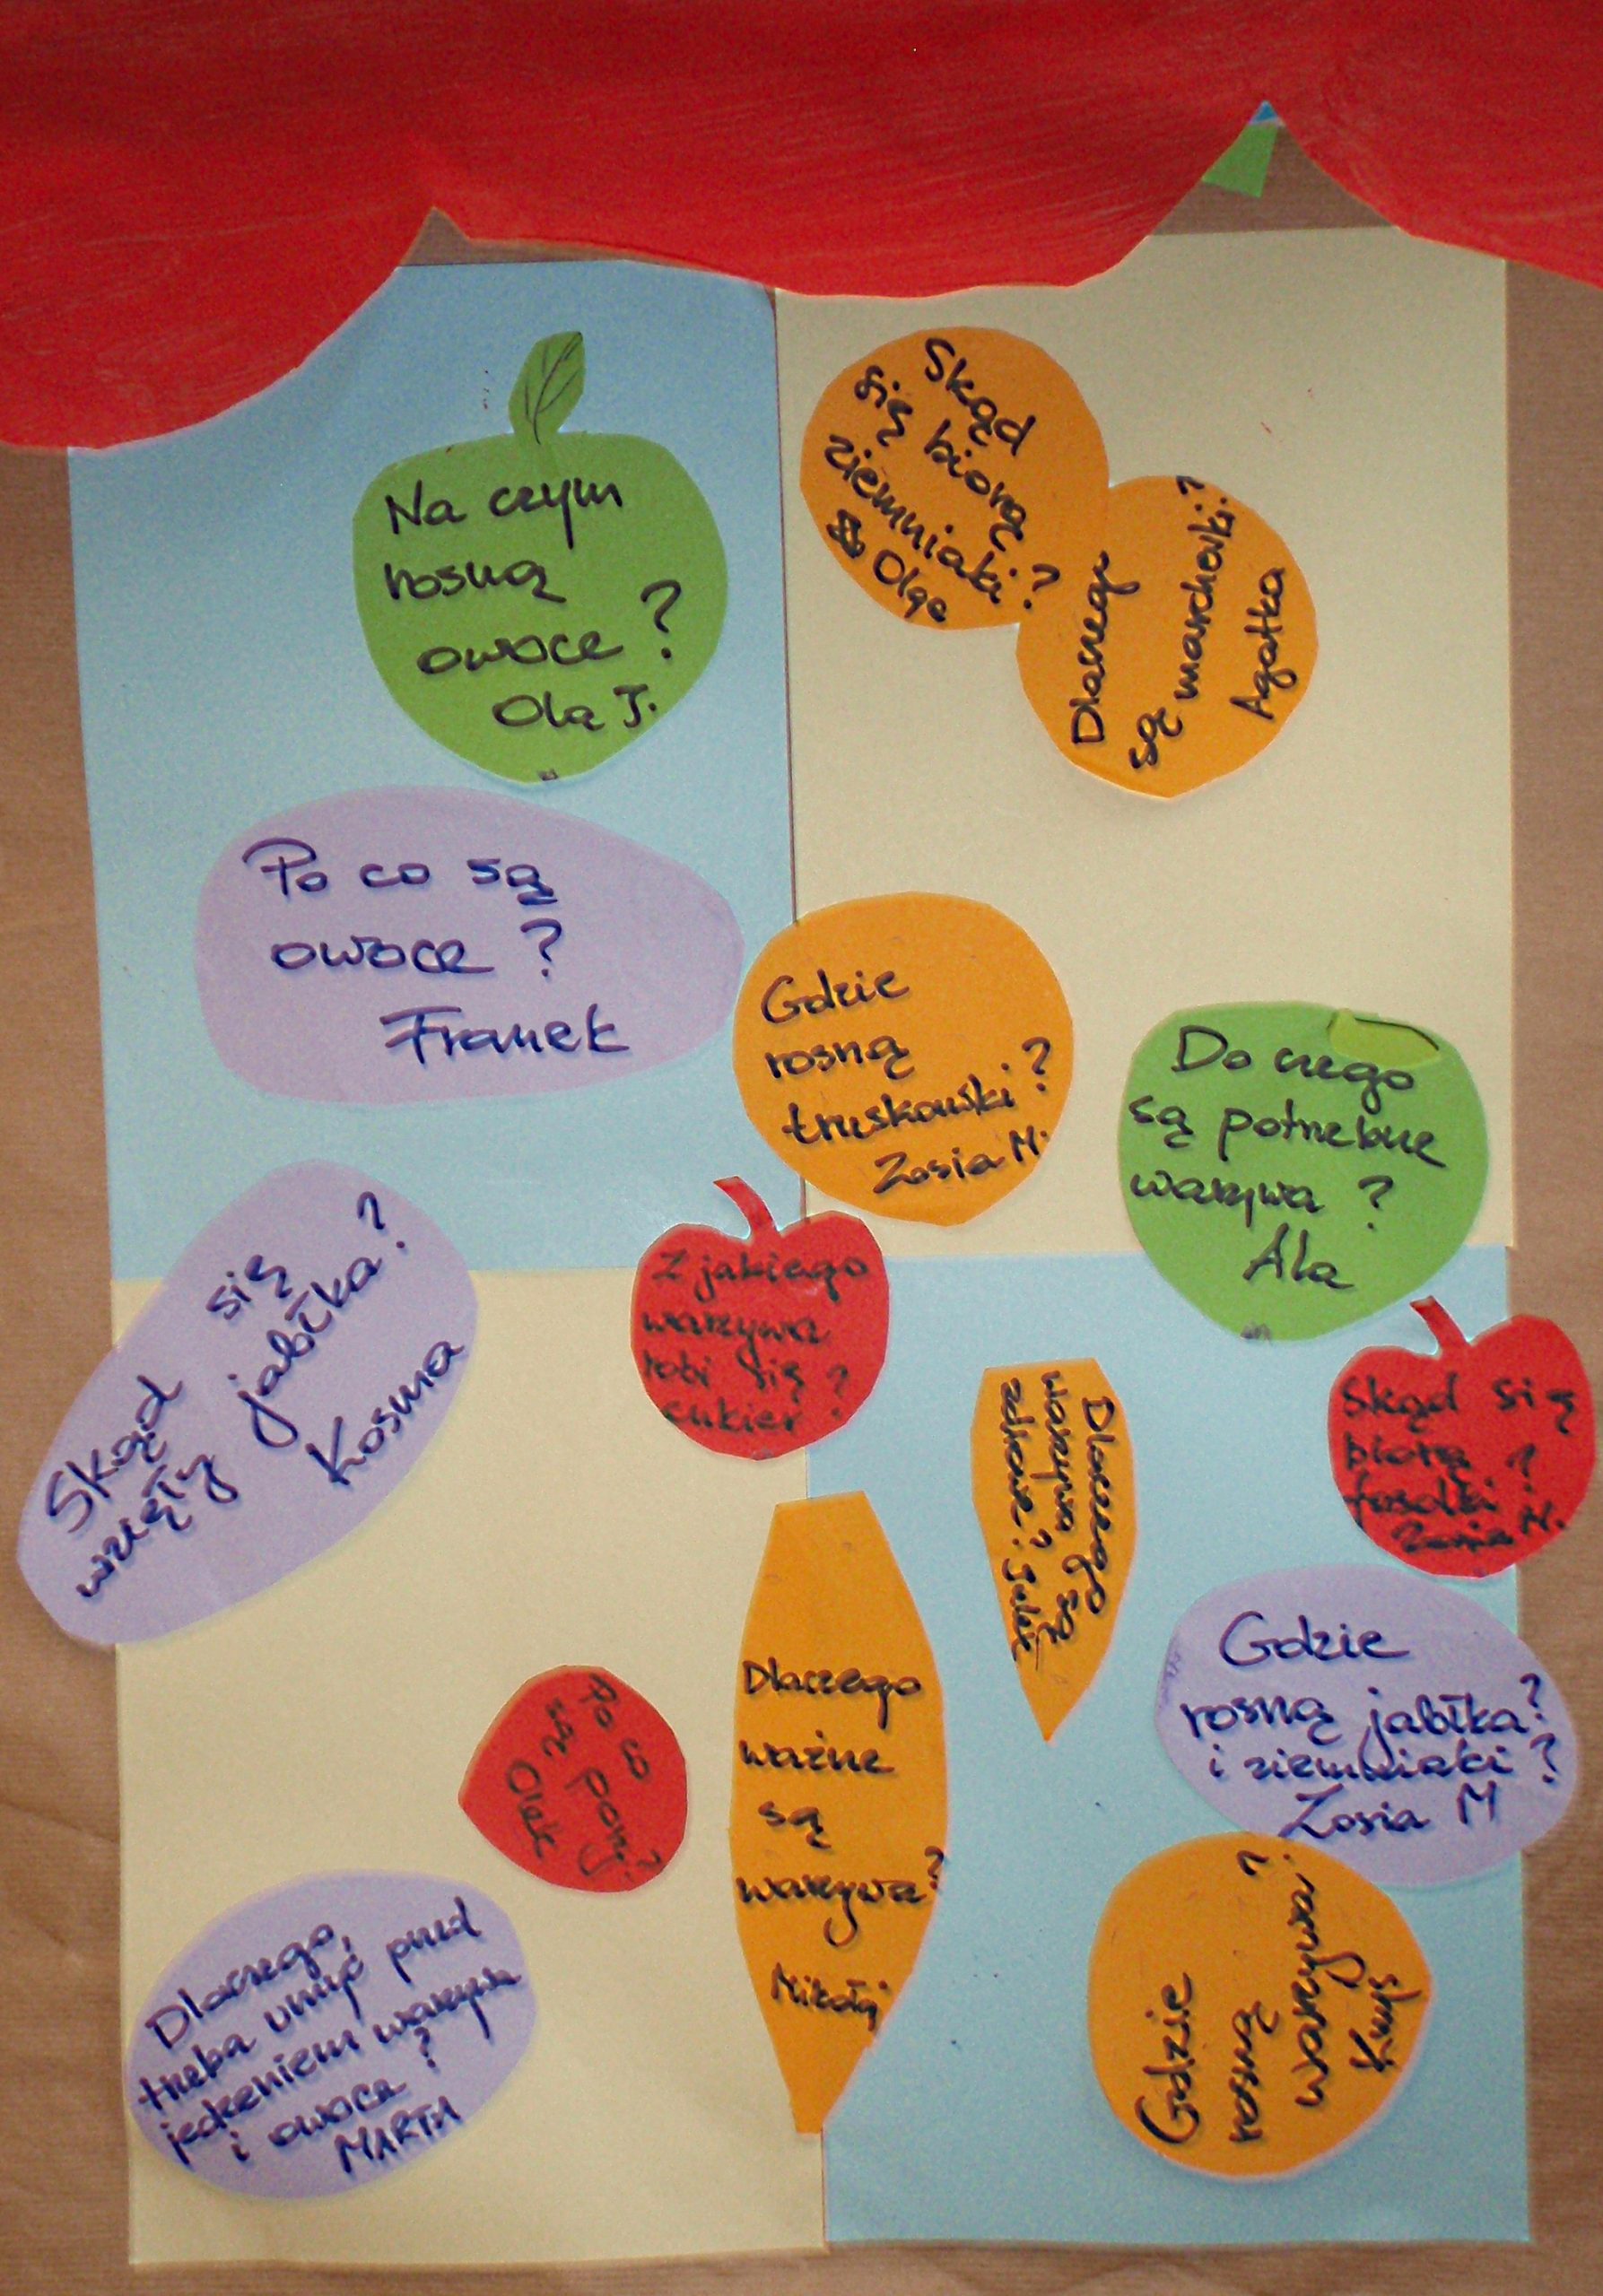 Na czym
rosną
owoce?
Ola J.
Skąd
się biorą
ziemniaki?
Olga
Dlaczego
są marchewki?
Agatka
Po co są
owoce?
Franek
Gdzie
rosną
truskawki?
Zosia M.
Do czego
są potrzebne
warzywa?
Ala
Skąd się
wzięły jabłka?
Kosma
Z jakiego
warzywa
robi się
cukier?
Dlaczego
warzywa są
zdrowe?
Skąd się
biorą
fasolki?
Zosia M.
Dlaczego
ważne
są
warzywa?
Mikołaj
Gdzie
rosną jabłka?
i ziemniaki?
Zosia M
Po co
są pory?
Olek
Dlaczego,
trzeba umyć przed
jedzeniem warzywa
i owoce?
MARTA
Gdzie
rosną
warzywa?